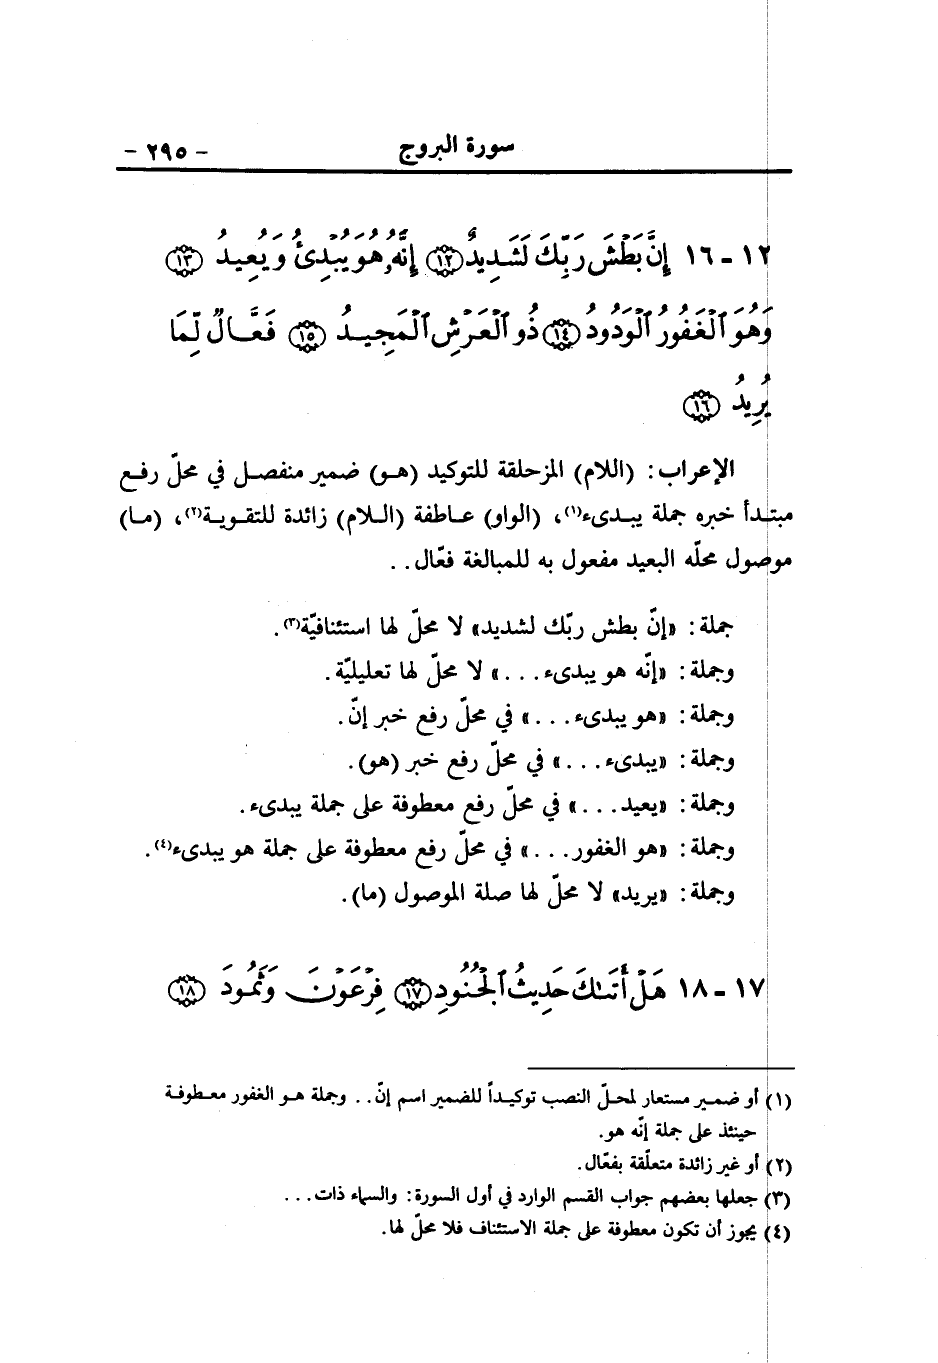 سورة البروج - ٢٩٥ -
١٢ - ١٦ إِنَّ بَطْشَ رَبِّكَ لَشَدِيدٌ ⑫ إِنَّهُۥ هُوَ يُبْدِئُ وَيُعِيدُ ⑬
وَهُوَ ٱلْغَفُورُ ٱلْوَدُودُ ⑭ ذُو ٱلْعَرْشِ ٱلْمَجِيدُ ⑮ فَعَّالٌ لِّمَا
يُرِيدُ ⑯
الإعراب: (اللام) المزحلقة للتوكيد (هو) ضمير منفصل في محلّ رفع
مبتدأ خبره جملة يبدىء(١)، (الواو) عاطفة (اللام) زائدة للتقوية(٢)، (ما)
موصول محلّه البعيد مفعول به للمبالغة فعّال..
جملة: «إنّ بطش ربّك لشديد» لا محلّ لها استئنافيّة(٣).
وجملة: «إنّه هو يبدىء...» لا محلّ لها تعليليّة.
وجملة: «هو يبدىء...» في محلّ رفع خبر إنّ.
وجملة: «يبدىء...» في محلّ رفع خبر (هو).
وجملة: «يعيد...» في محلّ رفع معطوفة على جملة يبدىء.
وجملة: «هو الغفور...» في محلّ رفع معطوفة على جملة هو يبدىء(٤).
وجملة: «يريد» لا محلّ لها صلة الموصول (ما).
١٧ - ١٨ هَلْ أَتَىٰكَ حَدِيثُ ٱلْجُنُودِ ⑰ فِرْعَوْنَ وَثَمُودَ ⑱
(١) أو ضمير مستعار لمحلّ النصب توكيداً للضمير اسم إنّ.. وجملة هو الغفور معطوفة
حينئذ على جملة إنّه هو.
(٢) أو غير زائدة متعلّقة بفعّال.
(٣) جعلها بعضهم جواب القسم الوارد في أول السورة: والسماء ذات...
(٤) يجوز أن تكون معطوفة على جملة الاستئناف فلا محلّ لها.